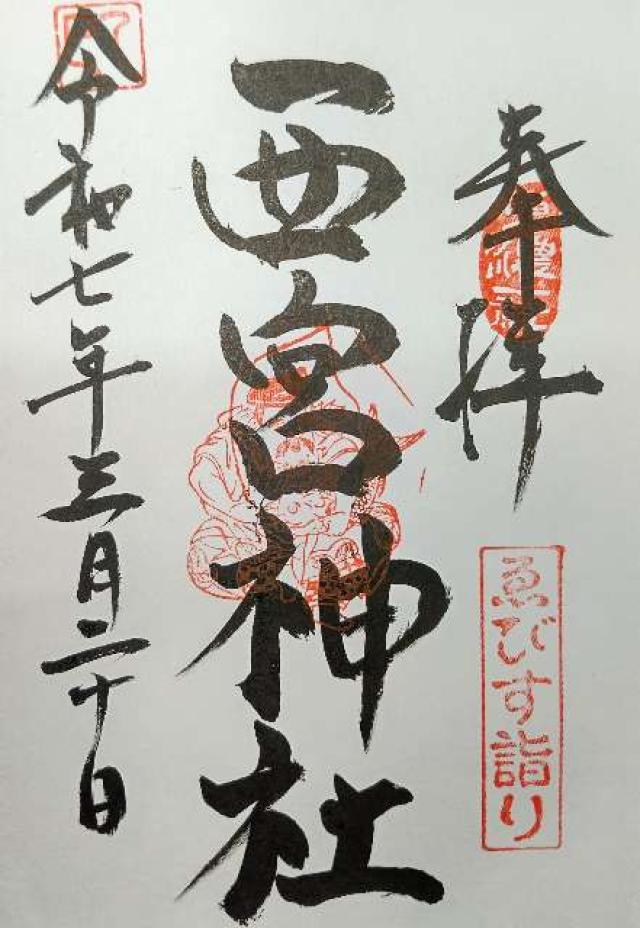 奉拝
ゑびす詣り
西宮神社
令和七年三月二十日